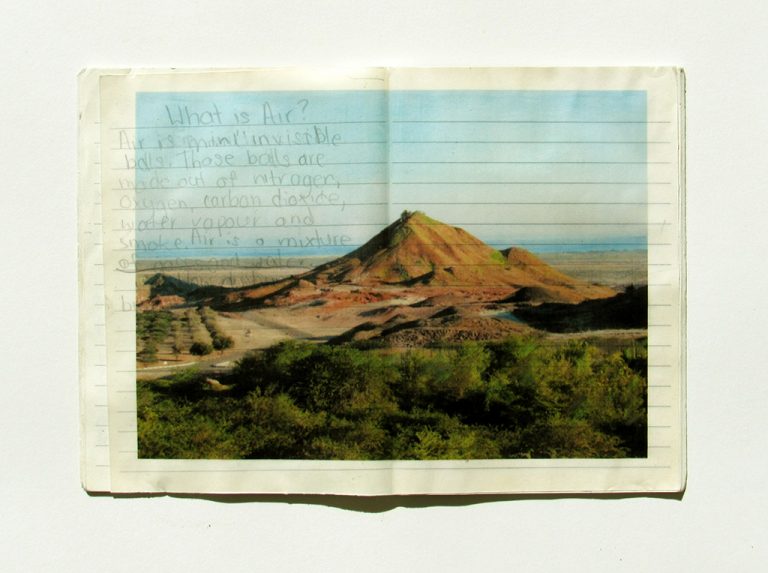 What is Air?
Air is invisible
balls. Those balls are
made out of nitrogen,
Oxygen, carban dioxide,
water vapour and
smoke. Air is a mixture
and water